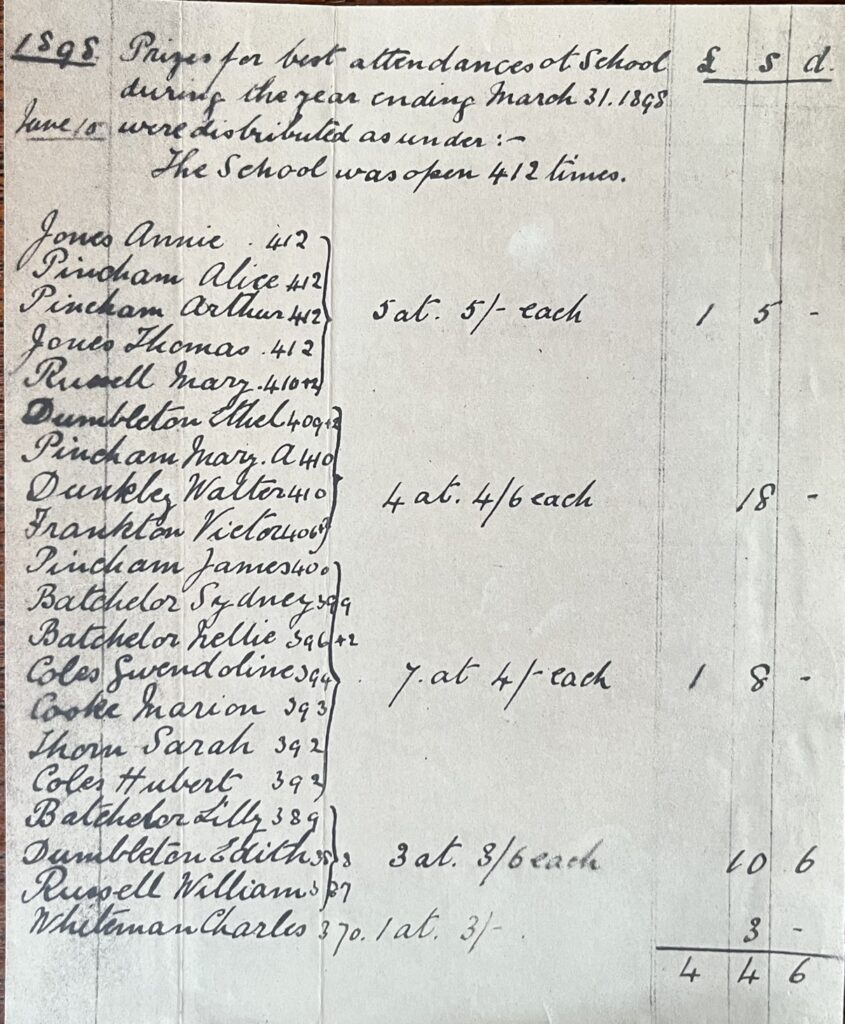 1898 Prizes for best attendances at School £ s d.
during the year ending March 31. 1898
June 10 were distributed as under :-
The School was open 412 times.
Jones Annie . 412
Pincham Alice 412
Pincham Arthur 412 5 at. 5/- each 1 5 -
Jones Thomas . 412
Russell Mary. 410+2
Dumbleton Ethel 409+2
Pincham Mary. A 410
Dunkley Walter 410 4 at. 4/6 each 18 -
Frankton Victor
Pincham James 400
Batchelor Sydney 399
Batchelor Nellie 396+2
Coles Gwendoline 394 7. at 4/- each 1 8 -
Cooke Marion 393
Thorn Sarah 392
Coles Hubert 392
Batchelor Lilly 389
Dumbleton Edith 3 at. 3/6 each 10 6
Russell William
Whiteman Charles 370. 1 at. 3/- . 3 -
4 4 6